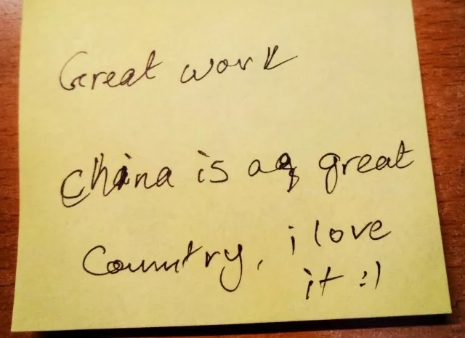 Great work
China is a great
Country, i love
it :)